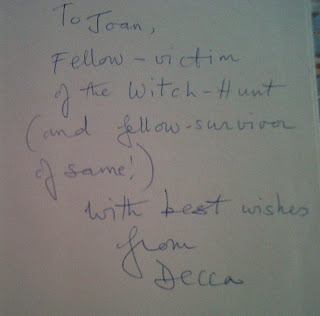 To Joan,
Fellow-victim
of the Witch-Hunt
(and fellow-survivor
of same!)
with best wishes
from
Decca